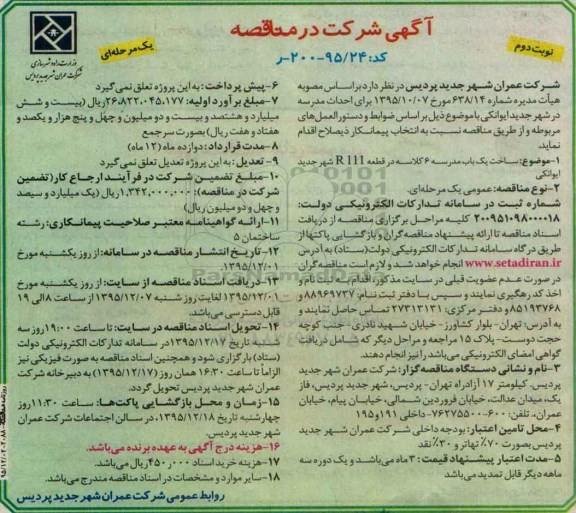 آگهی شرکت در مناقصه
کد: ۹۵/۲۴-۲۰۰-ر
نوبت دوم
یک مرحله‌ای
وزارت راه و شهرسازی
شرکت عمران شهر جدید پردیس
شرکت عمران شهر جدید پردیس در نظر دارد براساس مصوبه
هیأت مدیره شماره ۶۳۸/۱۴ مورخ ۱۳۹۵/۱۰/۰۷ برای احداث مدرسه
در شهر جدید ایوانکی با موضوع ذیل بر اساس ضوابط و دستورالعمل‌های
مربوطه و از طریق مناقصه نسبت به انتخاب پیمانکار ذیصلاح اقدام
نماید.
۱-موضوع: ساخت یک باب مدرسه ۶ کلاسه در قطعه R 111 شهر جدید
ایوانکی
۲-نوع مناقصه: عمومی یک مرحله‌ای.
شماره ثبت در سامانه تدارکات الکترونیکی دولت:
۲۰۰۹۵۱۰۹۸۰۰۰۰۱۸ کلیه مراحل برگزاری مناقصه از دریافت
اسناد مناقصه تا ارائه پیشنهاد مناقصه‌گران و بازگشایی پاکتها از
طریق درگاه سامانه تدارکات الکترونیکی دولت (ستاد) به آدرس
www.setadiran.ir انجام خواهد شد و لازم است مناقصه گران
در صورت عدم عضویت قبلی در سایت مذکور، اقدام به ثبت نام و
اخذ کد رهگیری نمایند و سپس با دفتر ثبت نام: ۸۸۹۶۹۷۳۷ و
۸۵۱۹۳۷۶۸ و دفتر مرکزی: ۲۷۳۱۳۱۳۱ تماس حاصل نمایند و
به آدرس: تهران- بلوار کشاورز- خیابان شهید نادری- جنب کوچه
حجت دوست- پلاک ۱۵ مراجعه و مراحل دیگر که شامل دریافت
گواهی امضای الکترونیکی می‌باشد را نیز انجام دهند.
۳-نام و نشانی دستگاه مناقصه گزار: شرکت عمران شهر جدید
پردیس. کیلومتر ۱۷ آزادراه تهران- پردیس، شهر جدید پردیس، فاز
یک، میدان عدالت، خیابان فروردین شمالی، خیابان پیام، خیابان
عمران، تلفن: ۶۰۰-۷۶۲۷۵۵۰۰- داخلی ۱۹۱ و ۱۹۵
۴-محل تامین اعتبار: بودجه داخلی شرکت عمران شهر جدید
پردیس بصورت ۷۰٪ تهاتر و ۳۰٪ نقد
۵-مدت اعتبار پیشنهاد قیمت: ۳ ماه می‌باشد و یک دوره سه
ماهه دیگر قابل تمدید می‌باشد
۶-پیش پرداخت: به این پروژه تعلق نمی‌گیرد
۷-مبلغ برآورد اولیه: ۲۶،۸۲۲،۰۴۵،۱۷۷ ریال (بیست و شش
میلیارد و هشتصد و بیست و دو میلیون و چهل و پنج هزار و یکصد و
هفتاد و هفت ریال) بصورت سرجمع
۸-مدت قرارداد: دوازده ماه (۱۲ ماه)
۹- تعدیل: به این پروژه تعدیل تعلق نمی‌گیرد
۱۰-مبلغ تضمین شرکت در فرآیند ارجاع کار (تضمین
شرکت در مناقصه): ۱،۳۴۲،۰۰۰،۰۰۰ ریال (یک میلیارد و سیصد
و چهل و دو میلیون ریال)
۱۱-ارائه گواهینامه معتبر صلاحیت پیمانکاری: رشته
ساختمان ۵
۱۲-تاریخ انتشار مناقصه در سامانه: از روز یکشنبه مورخ
۱۳۹۵/۱۲/۰۱
۱۳-دریافت اسناد مناقصه از سایت: از روز یکشنبه مورخ
۱۳۹۵/۱۲/۰۱ لغایت روز شنبه ۱۳۹۵/۱۲/۰۷ از ساعت ۸ الی ۱۹
قابل دسترسی می‌باشد.
۱۴-تحویل اسناد مناقصه در سایت: تا ساعت ۱۹:۰۰ روز سه
شنبه تاریخ ۱۳۹۵/۱۲/۱۷ در سامانه تدارکات الکترونیکی دولت
(ستاد) بارگزاری شود و همچنین اسناد مناقصه به صورت فیزیکی نیز
الزاماً تا ساعت ۱۶:۳۰ همان روز (۱۳۹۵/۱۲/۱۷) به دبیرخانه شرکت
عمران شهر جدید پردیس تحویل گردد.
۱۵-زمان و محل بازگشایی پاکت‌ها: ساعت ۱۱:۳۰ روز
چهارشنبه تاریخ ۱۳۹۵/۱۲/۱۸، در سالن اجتماعات شرکت عمران
شهر جدید پردیس.
۱۶-هزینه درج آگهی به عهده برنده می‌باشد.
۱۷-هزینه خرید اسناد ۴۵۰،۰۰۰ ریال می‌باشد.
۱۸-سایر موارد و مشخصات در اسناد مناقصه مندرج می‌باشد.
روابط عمومی شرکت عمران شهر جدید پردیس